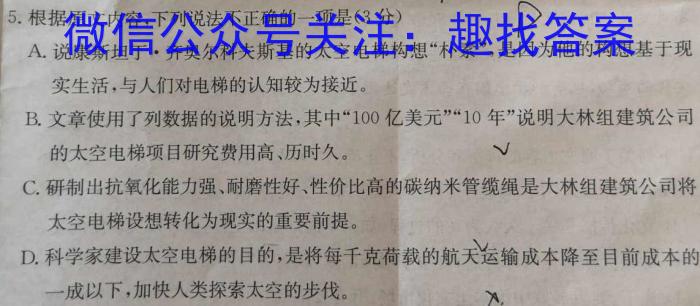 5. 根据原文内容,下列说法不正确的一项是(3分)
微信公众号关注：趣找答案
A. 说康斯坦丁·齐奥尔科夫斯基的太空电梯构想“朴素”,是因为他的构思基于现
实生活,与人们对电梯的认知较为接近。
B. 文章使用了列数据的说明方法,其中“100 亿美元”“10 年”说明大林组建筑公司
的太空电梯项目研究费用高、历时久。
C. 研制出抗氧化能力强、耐磨性好、性价比高的碳纳米管缆绳是大林组建筑公司将
太空电梯设想转化为现实的重要前提。
D. 科学家建设太空电梯的目的,是将每千克荷载的航天运输成本降至目前成本的
一成以下,加快人类探索太空的步伐。